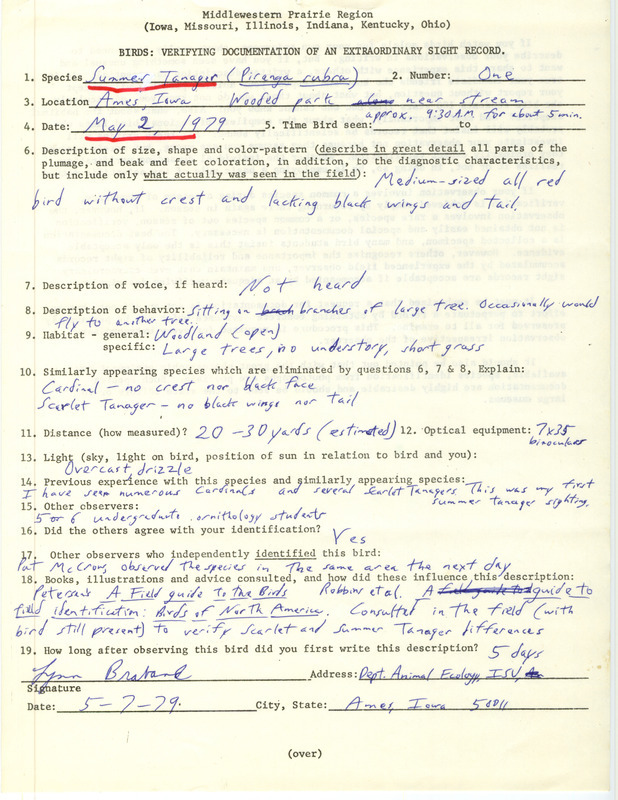 Middlewestern Prairie Region
(Iowa, Missouri, Illinois, Indiana, Kentucky, Ohio)
BIRDS: VERIFYING DOCUMENTATION OF AN EXTRAORDINARY SIGHT RECORD.
1. Species Summer Tanager (Piranga rubra) 2. Number: One
3. Location Ames, Iowa Wooded park along near stream
4 Date: May 2, 1979 5. Time Bird seen: approx. 9:30 A.M. for about 5 min. to
6. Description of size, shape and color-pattern (describe in great detail all parts of the
plumage, and beak and feet coloration, in addition, to the diagnostic characteristics,
but include only what actually was seen in the field): Medium-sized all red
bird without crest and lacking black wings and tail.
7. Description of voice, if heard: Not heard
8. Description of behavior: Sitting on branches of large tree. Occasionally would
fly to another tree.
9. Habitat - general: Woodland (open)
specific: Large trees, no understory, short grass
10. Similarly appearing species which are eliminated by questions 6, 7 & 8, Explain:
Cardinal - no crest nor black face
Scarlet Tanager - no black wings nor tail
11. Distance (how measured)? 20-30 yards (estimated) 12. Optical equipment: 7x35
binoculars
13. Light (sky, light on bird, position of sun in relation to bird and you):
Overcast, drizzle
14. Previous experience with this species and similarly appearing species:
I have seen numerous Cardinals and several Scarlet Tanagers This was my first
summer tanager sighting.
15. Other observers:
5 or 6 undergraduate ornithology students
16. Did the others agree with your identification?
Yes
17. Other observers who independently identified this bird:
Pat McCrow observed the species in the same area the next day
18. Books, illustrations and advice consulted, and how did these influence this description:
Petersons A Field guide to the Birds Robbins et al. A guide to
field identification: Birds of North America. Consulted in the field (with
bird still present) to verify Scarlet and Summer Tanager differences
19. How long after observing this bird did you first write this description? 5 days
Lynn Braband Address: Dept. Animal Ecology, ISU,
Signature
Date: 5-7-79. City, State: Ames, Iowa 50011
(over)